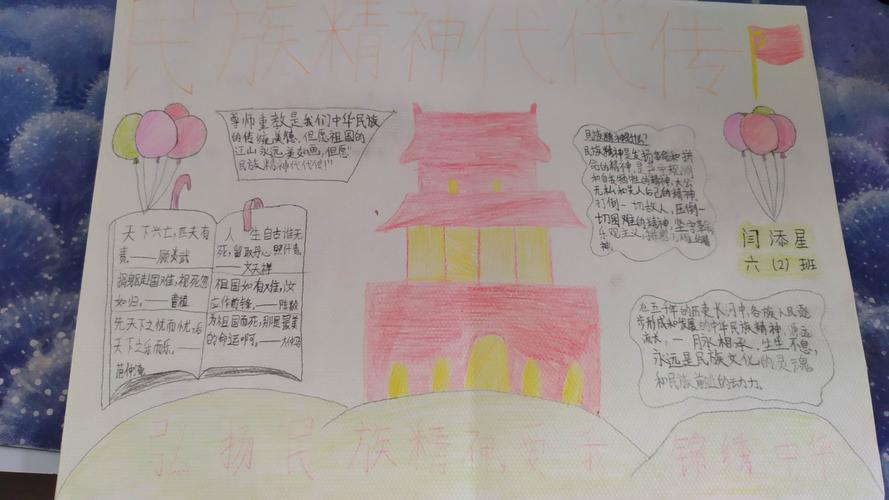 民族精神代代传
尊师重教是我们中华民族
的传统美德,但愿祖国的
江山永远美如画,但愿“
民族精神代代传!”
天下兴亡,匹夫有
责。——顾炎武
捐躯赴国难,视死忽
如归。——曹植
先天下之忧而忧,后
天下之乐而乐。——
范仲淹
人生自古谁无
死,留取丹心照汗青。
——文天祥
祖国如有难,汝
应作前锋。——陈毅
为祖国而死,那是最美
的命运啊。——大仲马
民族精神是什么?
民族精神是发扬革命和拼
命的精神,是
和自我牺牲的精神,大公
无私和先人后己的精神,
打倒一切敌人,压倒一
切困难的精神,坚
乐观主义,排
神。
闫添星
六(2)班
在五千年的历史长河中,各族人民逐
步形成和发展的中华民族精神,源远
流长,一脉相承,生生不息,
永远是民族文化的灵魂
和民族前业的动力。
弘扬民族精神,爱我锦绣中华